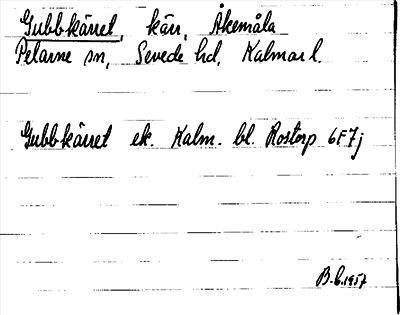 Gubbkärret, kärr, Åkemåla
Pelarne sn, Sevede hd, Kalmar l.
Gubbkärret ek. Kalm. bl. Rostorp 6F7j
B.G. 1957